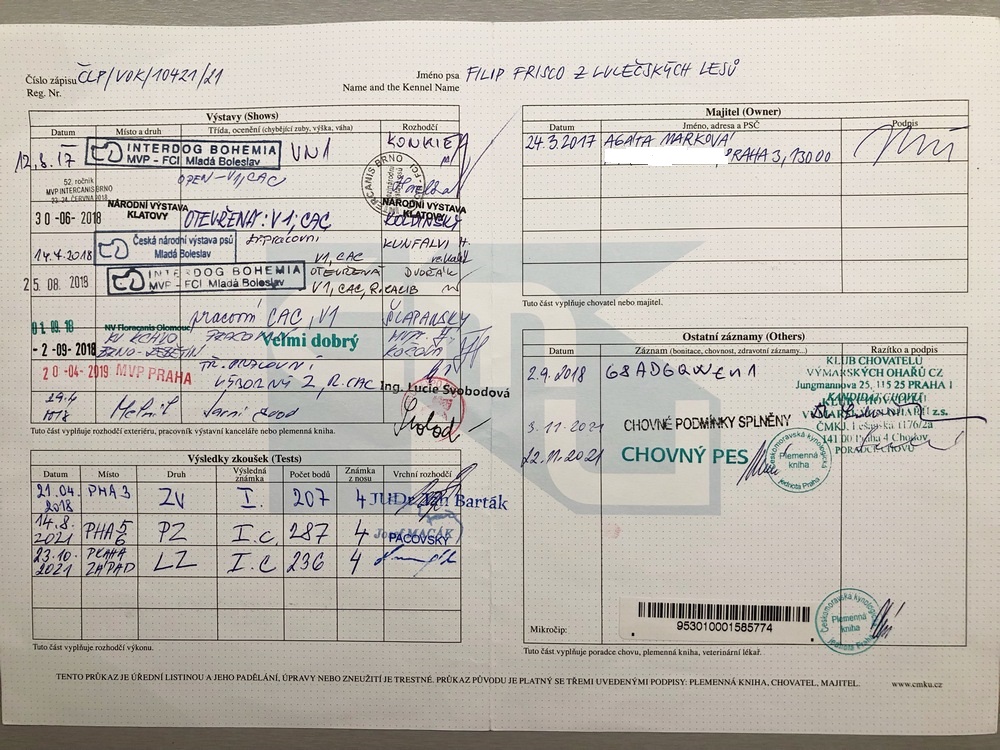 Číslo zápisu ČLP/VOK/10421/21
Reg. Nr.
Jméno psa FILIP FRISCO Z LULEČSKÝCH LESŮ
Name and the Kennel Name
Výstavy (Shows)
Datum Místo a druh Třída, ocenění (chybějící zuby, výška, váha) Rozhodčí
12.8.17 INTERDOG BOHEMIA VN1
MVP - FCI Mladá Boleslav
52. ročník
MVP INTERCANIS BRNO
23.-24. ČERVNA 2018
OPEN - V1, CAC
30-06-2018 NÁRODNÍ VÝSTAVA KLATOVY OTEVŘENÁ: V1, CAC NÁRODNÍ VÝSTAVA KLATOVY
14.4.2018 Česká národní výstava psů KUNFALVI H.
Mladá Boleslav V1, CAC
25.08.2019 INTERDOG BOHEMIA OTEVŘENÁ DVOŘÁK
MVP - FCI Mladá Boleslav V1, CAC, R.CACIB
01.09.18 pracovní CAC, V1 ŠLAPANSKÝ
NV Floracanis Olomouc
-2-09-2018 Velmi dobrý
20-04-2019 MVP PRAHA TŘ. PRACOVNÍ
VÝBORNÝ 2, R.CAC Ing. Lucie Svobodová
29.4 Mělník Jarní svod
Tuto část vyplňuje rozhodčí exteriéru, pracovník výstavní kanceláře nebo plemenná kniha.
Výsledky zkoušek (Tests)
Datum Místo Druh Výsledná známka Počet bodů Známka z nosu Vrchní rozhodčí
21.04.2018 PHA 3 ZV I. 207 4 JUDr. Jan Barták
14.8.2021 PHA 5 6 PZ I.c 287 4 PACOVSKÝ
23.10.2021 PRAHA ZÁPAD LZ I.c 236 4
Tuto část vyplňuje rozhodčí výkonu.
Majitel (Owner)
Datum Jméno, adresa a PSČ Podpis
24.3.2017 AGÁTA MARKOVÁ
PRAHA 3, 130 00
Tuto část vyplňuje chovatel nebo majitel.
Ostatní záznamy (Others)
Datum Záznam (bonitace, chovnost, zdravotní záznamy...) Razítko a podpis
KLUB CHOVATELŮ
VÝMARSKÝCH OHAŘŮ CZ
Jungmannova 25, 115 25 PRAHA 1
2.9.2018
KANDIDÁT CHOVU
3.11.2021 CHOVNÉ PODMÍNKY SPLNĚNY
22.11.2021 CHOVNÝ PES
141 00 Praha 4 Chodov
PORADCE CHOVU
Českomoravská kynologická jednota Praha
Plemenná kniha
Mikročip: 953010001585774
Českomoravská kynologická jednota Praha
Plemenná kniha
Tuto část vyplňuje poradce chovu, plemenná kniha, veterinární lékař.
TENTO PRŮKAZ JE ÚŘEDNÍ LISTINOU A JEHO PADĚLÁNÍ, ÚPRAVY NEBO ZNEUŽITÍ JE TRESTNÉ. PRŮKAZ PŮVODU JE PLATNÝ SE TŘEMI UVEDENÝMI PODPISY: PLEMENNÁ KNIHA, CHOVATEL, MAJITEL.
www.cmku.cz